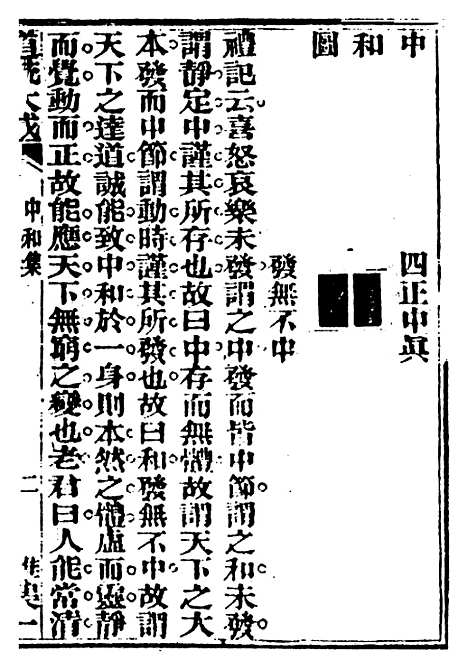 中
和
圖
四正中眞
發無不中
禮記云喜怒哀樂未發謂之中發而皆中節謂之和未發
謂靜定中謹其所存也故曰中存而無體故謂天下之大
本發而中節謂動時謹其所發也故曰和發無不中故謂
天下之達道誠能致中和於一身則本然之體虛而靈靜
而覺動而正故能應天下無窮之變也老君曰人能常清
道統大成
中和集
二